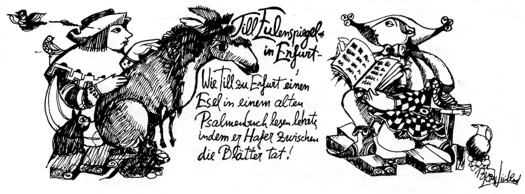 Till Eulenspiegel
in Erfurt
Wie Till zu Erfurt einen
Esel in einem alten
Psalmenbuch lesen lehrt,
indem er Hafer zwischen
die Blätter tat!